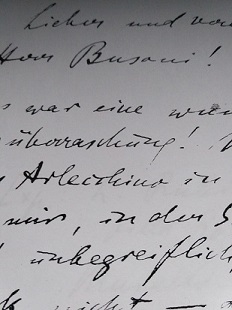 Lieber und ver
Herr Busoni!
s war eine wun
überraschung!
Arlecchino in
mir, in der S
unbegreiflich,
nicht —